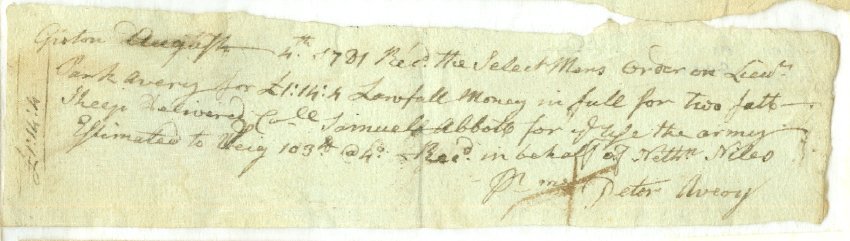 Groton August 4th 1781 Recd. the Select Mens Order on Lieut.
Park Avery for £1:14:4 Lawfull Money in full for two fatt
Sheep Delivered Colle Samuel Abbott for ye use the army
Estimated to Weig 103lb @ 4d. Recd. in behalf of Nathn Niles
Pr me Peter Avery
£1:14:4